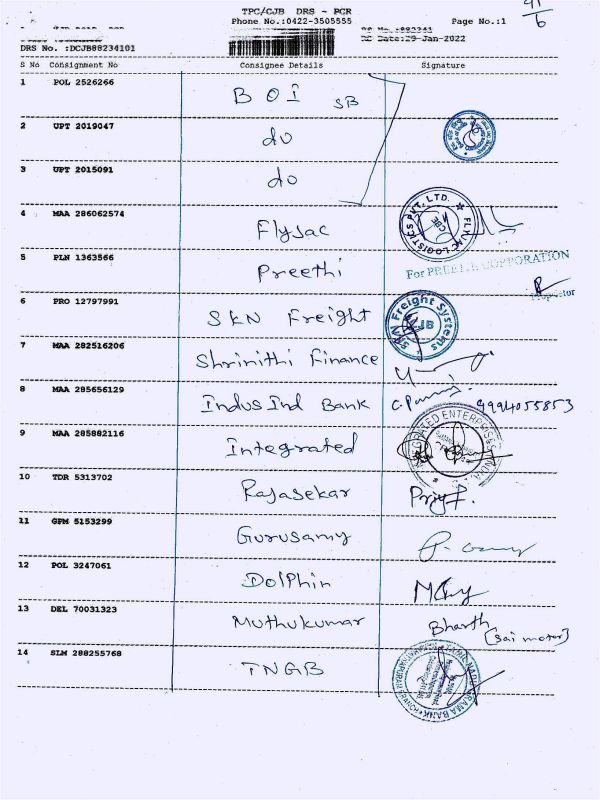 TPC/CJB DRS - PCR
Phone No.:0422-3505555 Page No.:1
DRS No. :DCJB88234101 Date:29-Jan-2022
S No Consignment No Consignee Details Signature
1 POL 2526266 BOI SB
2 UPT 2019047 do
3 UPT 2015091 do
4 MAA 286062574 Flyjac FLYJAC LOGISTICS PVT. LTD. CBE
5 PLN 1363566 Preethi For PREETHI CORPORATION
Proprietor
6 PRO 12797991 SKN Freight SKN Freight Systems CJB
7 MAA 282516206 Shrinithi Finance
8 MAA 285656129 IndusInd Bank 9994055853
9 MAA 285882116 Integrated INTEGRATED ENTERPRISES
10 TDR 5313702 Rajasekar
11 GPM 5153299 Gurusamy
12 POL 3247061 Dolphin
13 DEL 70031323 Muthukumar Bharth
(Sai motor)
14 SLM 288255768 TNGB TAMIL NADU GRAMA BANK